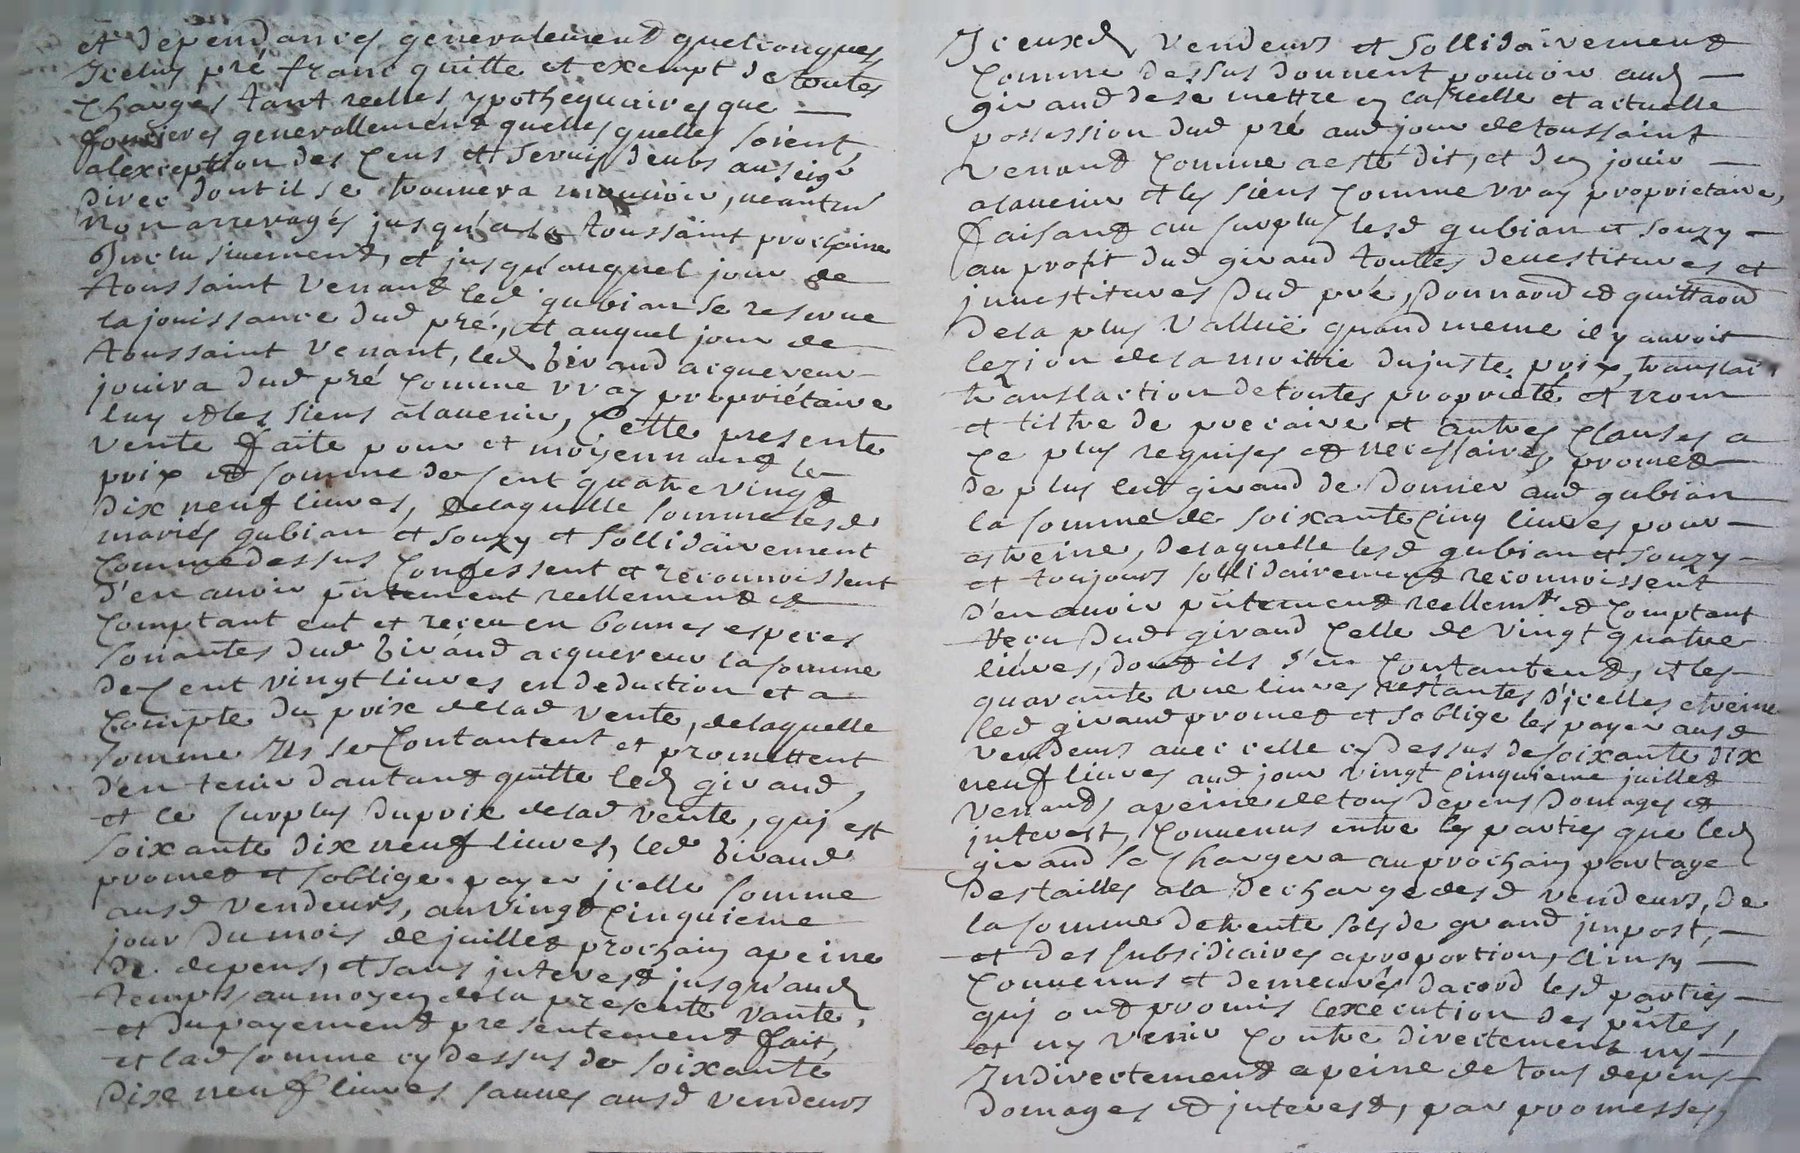 et dependances generalement quelconques
Icelui pré franc quitte et exempt de toutes
charges tant reelles ypothequaires que
foncieres generallement quelles quelles soient,
alexception des cens et servis deubs au seigr
direc dont il se trouvera mouvoir, neantms
non arreragés jusqu'a la toussaint prochaine
Inclusivement, et jusqu'auquel jour de
toussaint venant led gubian se reserve
la jouissance dud pré, et auquel jour de
toussaint venant, led Giraud acquereur
jouira dud pré comme vray propriétaire
luy et les siens alavenir, Cette presente
vente faite pour et moyennant le
prix et somme de sent quatre vingt
dix neuf livres, delaquelle somme lesd
mariés gubian et souzy et sollidairement
comme dessus confessent et reconnoissent
d'en avoir pntement reellement et
comptant eut et receu en bonnes especes
sonantes dud Giraud acquereur la somme
de cent vingt livres en deduction et a
compte du prix delad vente, delaquelle
somme Ils se contantent et promettent
d'en tenir dautant quitte led giraud,
et le surplus duprix delad vente, quj est
soixante dix neuf livres, led Giraud
promet et soblige payer jcelle somme
ausd vendeurs, au vingt cinquieme
jour du mois de juillet prochain apeine
de depens, et sans jnterest jusqu'aud
temps, au moyen de la presente vante,
et du payement presentement fait,
et lad somme cy dessus de soixante
dix neuf livres sauves ausd vendeurs
Iceuxd vendeurs et sollidairement
comme dessus donnent pouvoir aud
giraud de se mettre en la reelle et actuelle
possession dud pré aud jour de toussaint
venant comme a esté dit, et den jouir
alavenir et les siens comme vray proprietaire,
faisant au surplus lesd gubian et souzy
au profit dud giraud touttes devestitures et
jnvestitures dud pré, donnaond et quittaond
de la plus vallüe quand meme il y auroit
lezion de la moittie dujuste prix, translai
translaction de toutes proprieté et nom
et tiltre de precaire et autres clauses a
ce plus requises et necessaires, promet
de plus led giraud de donner aud gubian
la somme de soixante cinq livres pour
etreine, delaquelle lesd gubian et souzy
et toujours sollidairement reconnoissent
d'en avoir pntement reellemt et comptant
receu dud giraud celle de vingt quatre
livres, dont ils s'en contantent, et les
quarante une livres restantes d'jcelles etreine
led giraud promet et soblige les payer ausd
vendeurs avec celle cy dessus de soixante dix
neuf livres aud jour vingt cinquieme juillet
venant, apeine de tous depens domages et
jnterest, convenus entre les parties que led
giraud se chargera au prochain partage
des tailles ala decharge desd vendeurs, de
la somme de trente sols de grand jmpost,
et des subsidiaires aproportion, Ainsy
convenus et demeurés dacord lesd parties
quj ont promis lexecution des pntes,
et ny venir contre directement ny
Indirectement apeine de tous depens
domages et jnterest, par promesses,